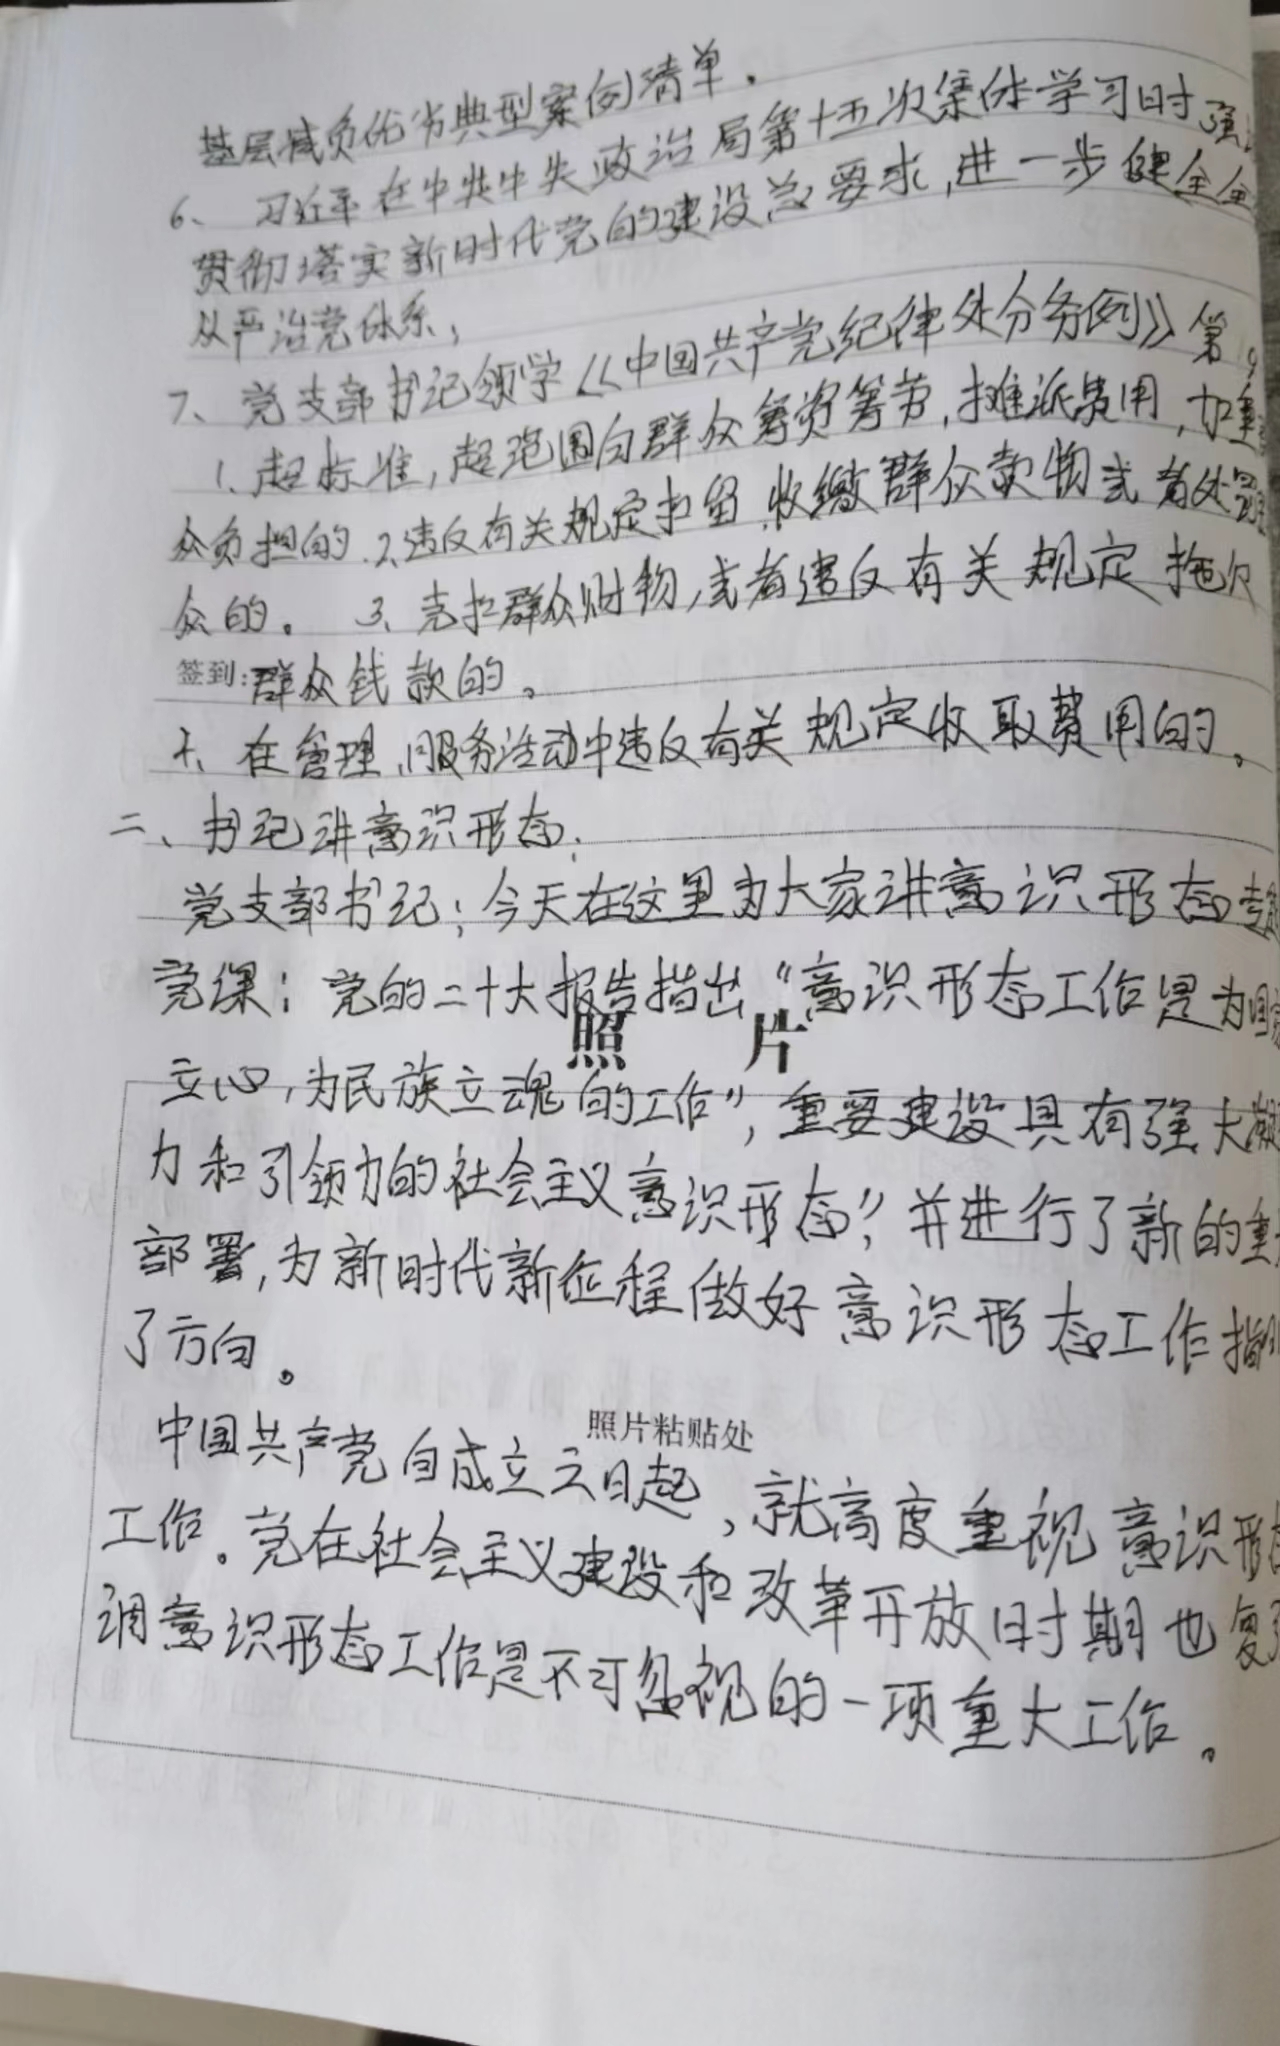 基层减负优秀典型案例清单。
6、习近平在中共中央政治局第十五次集体学习时强
贯彻落实新时代党的建设总要求，进一步健全全
从严治党体系；
7、党支部书记领学《中国共产党纪律处分条例》第
1、超标准，超范围向群众筹资筹劳，摊派费用，加重
众负担的 2、违反有关规定扣留、收缴群众款物或者处罚
众的。 3、克扣群众财物，或者违反有关规定拖欠
签到：群众钱款的。
4、在管理、服务活动中违反有关规定收取费用的。
二、书记讲意识形态：
党支部书记：今天在这里为大家讲意识形态专题
党课：党的二十大报告指出“意识形态工作是为国家
照 片
立心，为民族立魂的工作”，重要建设具有强大凝
力和引领力的社会主义意识形态”，并进行了新的重
部署，为新时代新征程做好意识形态工作指
了方向。
照片粘贴处
中国共产党自成立之日起，就高度重视意识形
工作。党在社会主义建设和改革开放时期也
调意识形态工作是不可忽视的一项重大工作。